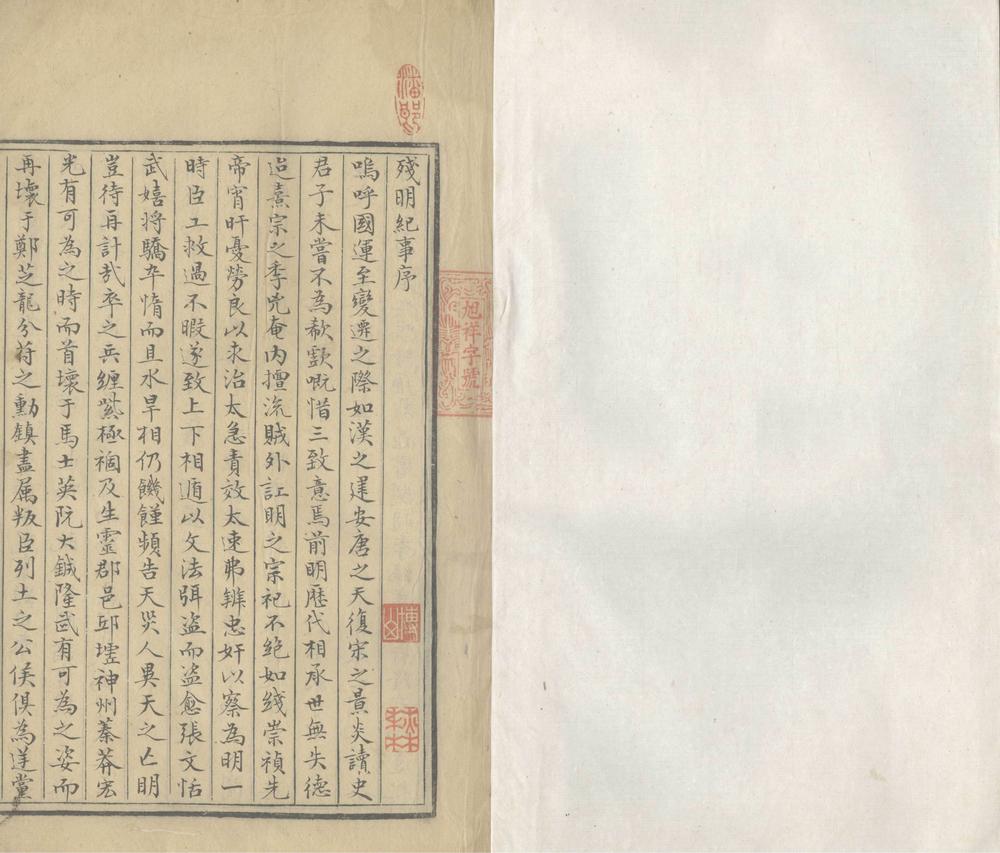 殘明紀事序
嗚呼國運至變遷之際如漢之建安唐之天復宋之景炎讀史
君子未嘗不為欷歔嘅惜三致意焉前明歷代相承世無失德
迨熹宗之季兇奄內擅流賊外訌明之宗祀不絕如綫崇禎先
帝宵旰憂勞良以求治太急責效太速弗辨忠奸以察為明一
時臣工救過不暇遂致上下相遁以文法弭盜而盜愈張文恬
武嬉将驕卒惰而且水旱相仍饑饉頻告天災人異天之亡明
豈待再計哉卒之兵纏紫極禍及生靈郡邑邱墟神州蓁莽宏
光有可為之時而首壞于馬士英阮大鋮隆武有可為之姿而
再壞于鄭芝龍分符之勳鎮盡属叛臣列土之公侯俱為逆黨
旭祥字號
博山